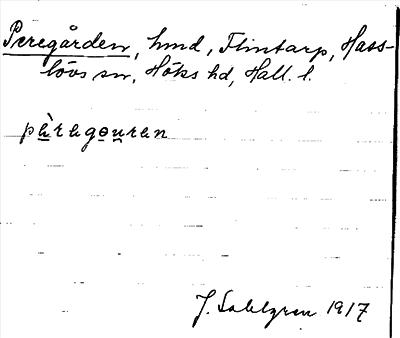 Peregården, hmd, Flintarp, Hass-
lövs sn, Höks hd, Hall. l.
pàragounan
J. Sahlgren 1917